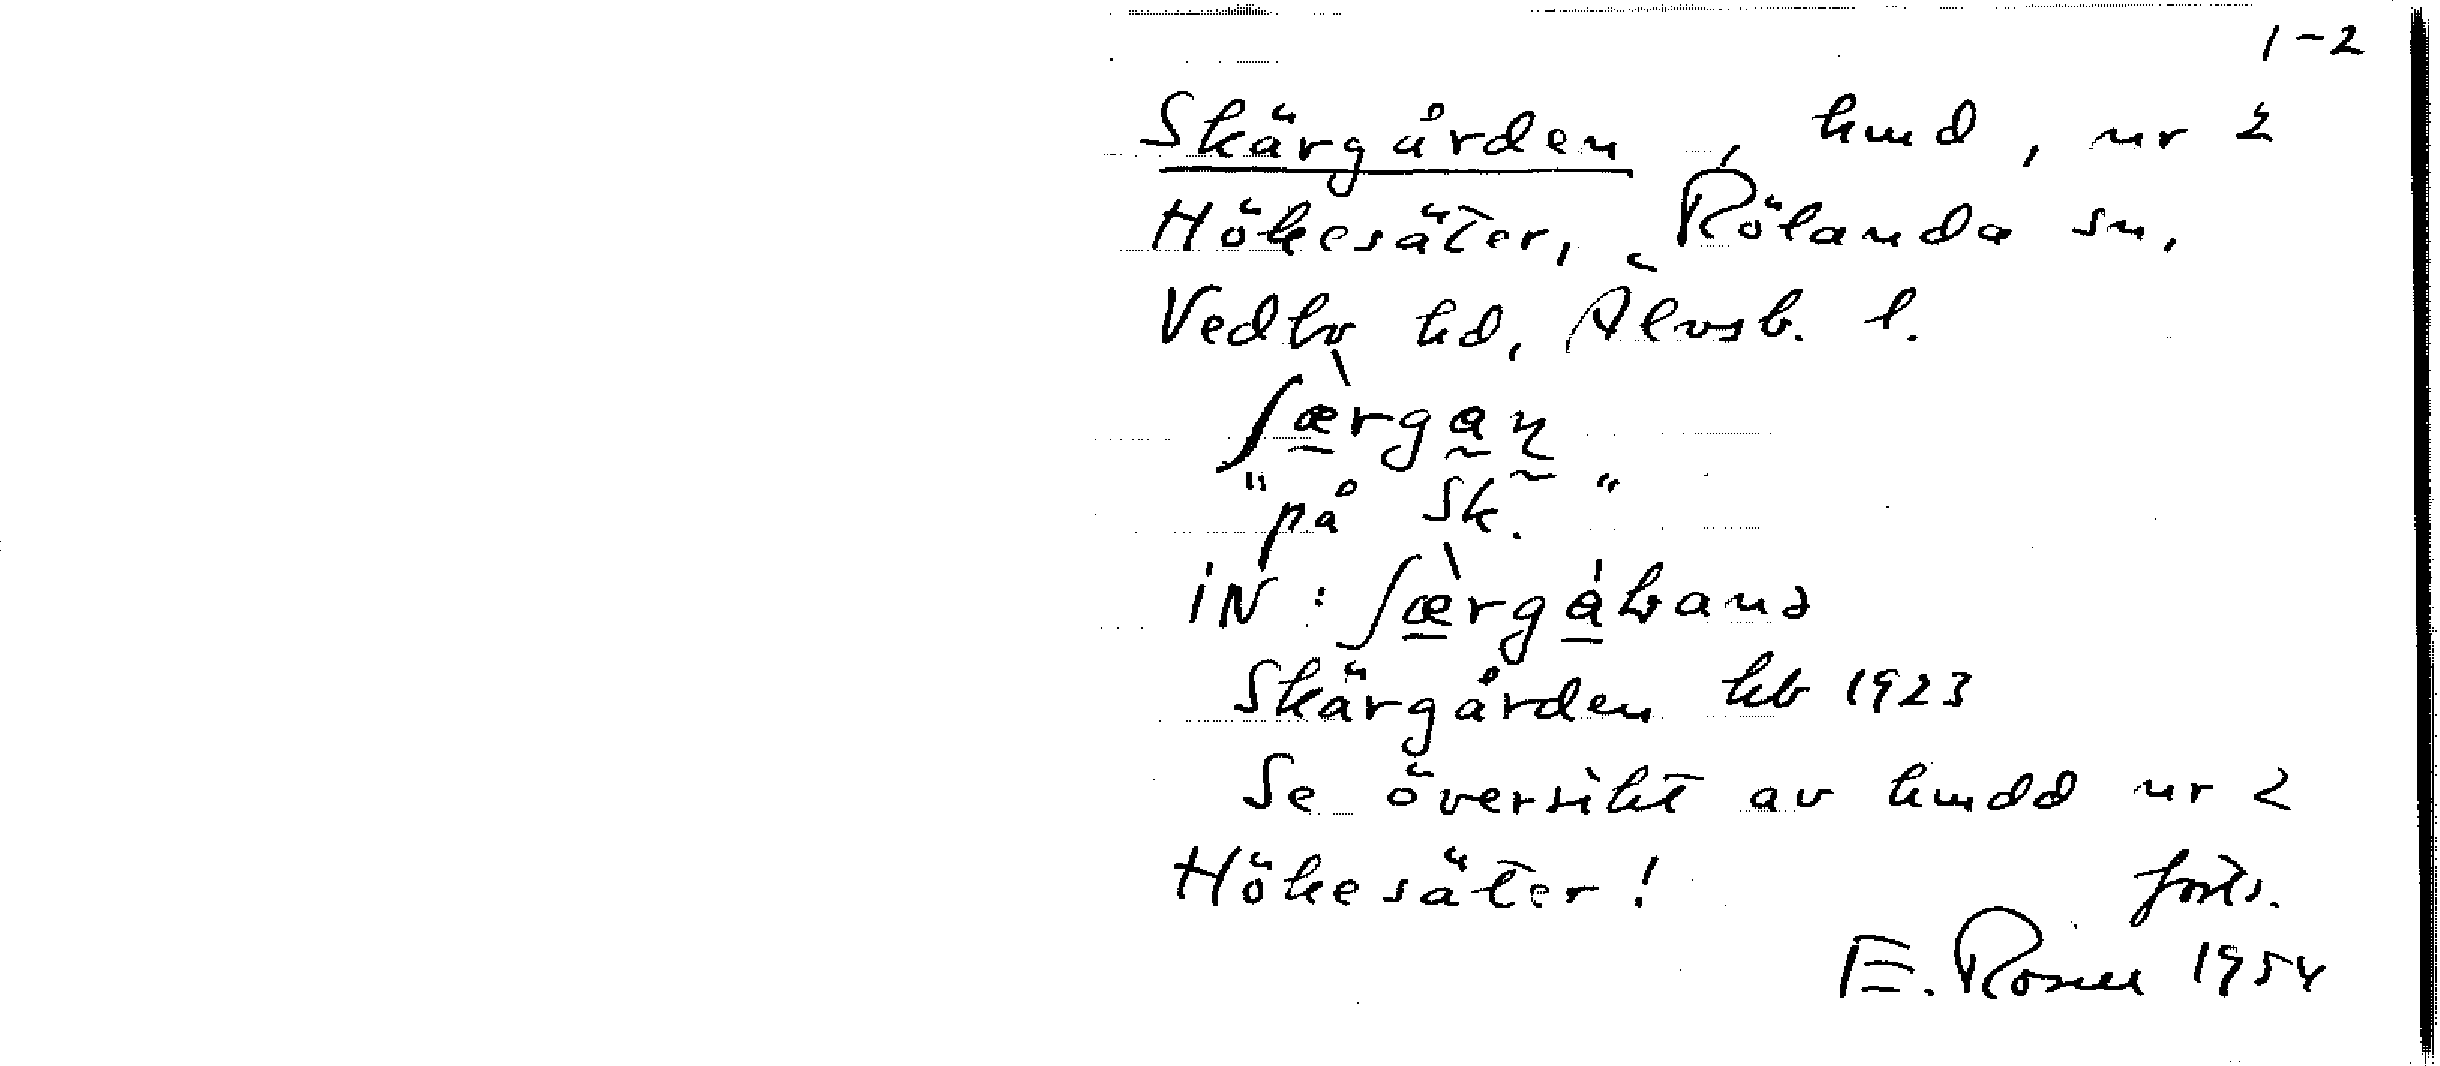 1-2
Skärgården, hmd, nr 2
Hökesäter, Rölanda sn,
Vedbo hd, Älvsb. l.
ʃæ̀rgaṇ
"på Sk."
iN: ʃæ̀rgábana
Skärgården kb 1923
Se översikt av hmdd nr 2
Hökesäter! forts.
E. Rosell 1954